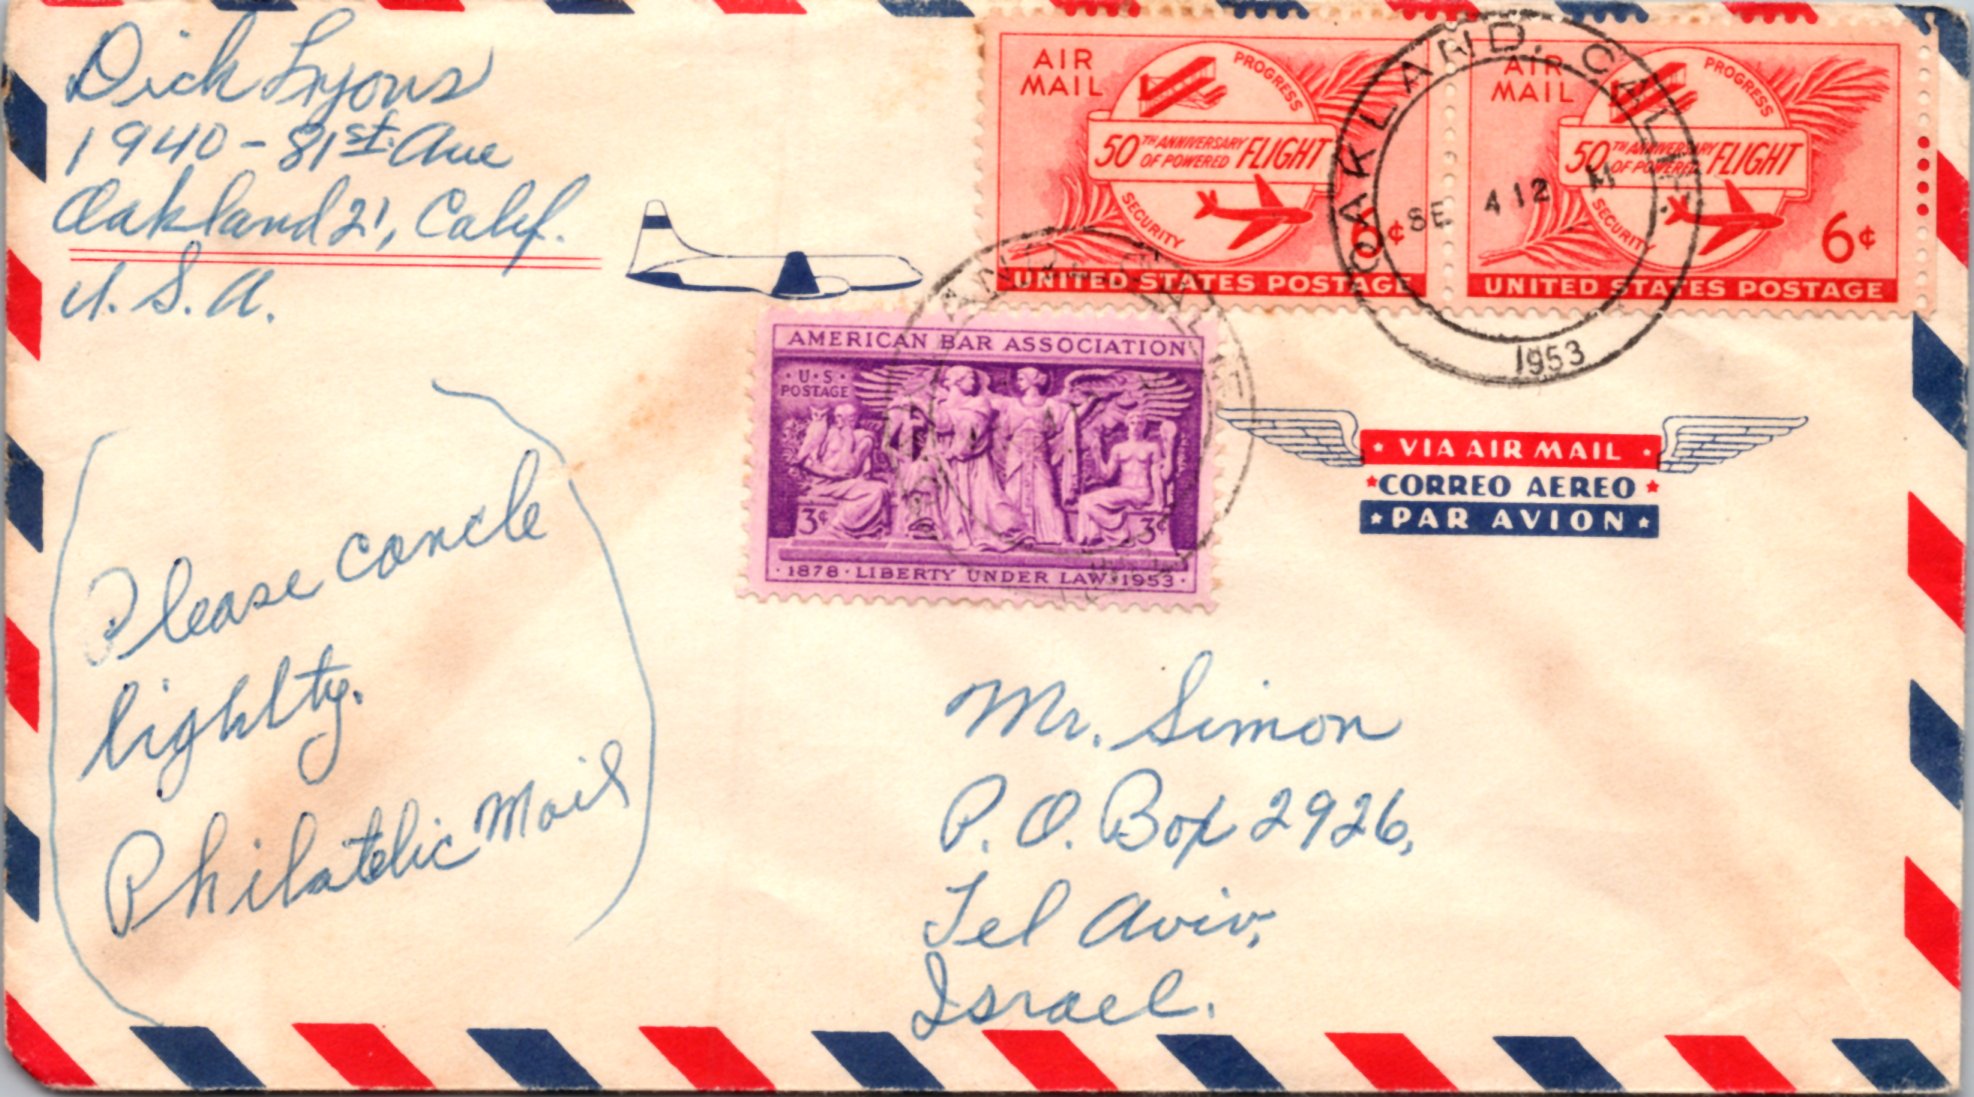 Dick Lyons
1940 - 81st Ave
Oakland 21, Calif.
U. S. A.
AIR MAIL
PROGRESS
50TH ANNIVERSARY OF POWERED FLIGHT
SECURITY
6¢
UNITED STATES POSTAGE
AIR MAIL
PROGRESS
50TH ANNIVERSARY OF POWERED FLIGHT
SECURITY
6¢
UNITED STATES POSTAGE
OAKLAND, CALIF.
SE 4 12 M
1953
AMERICAN BAR ASSOCIATION
· U · S ·
POSTAGE
3¢ 3¢
· 1878 · LIBERTY UNDER LAW · 1953 ·
· VIA AIR MAIL ·
★ CORREO AEREO ★
★ PAR AVION ★
Please concle
lighlty.
Philatelic Mail
Mr. Simon
P. O. Box 2926,
Tel Aviv,
Israel.